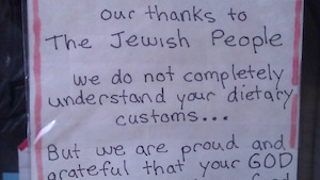 our thanks to
The Jewish People
we do not completely
understand your dietary
customs...
But we are proud and
grateful that your GOD